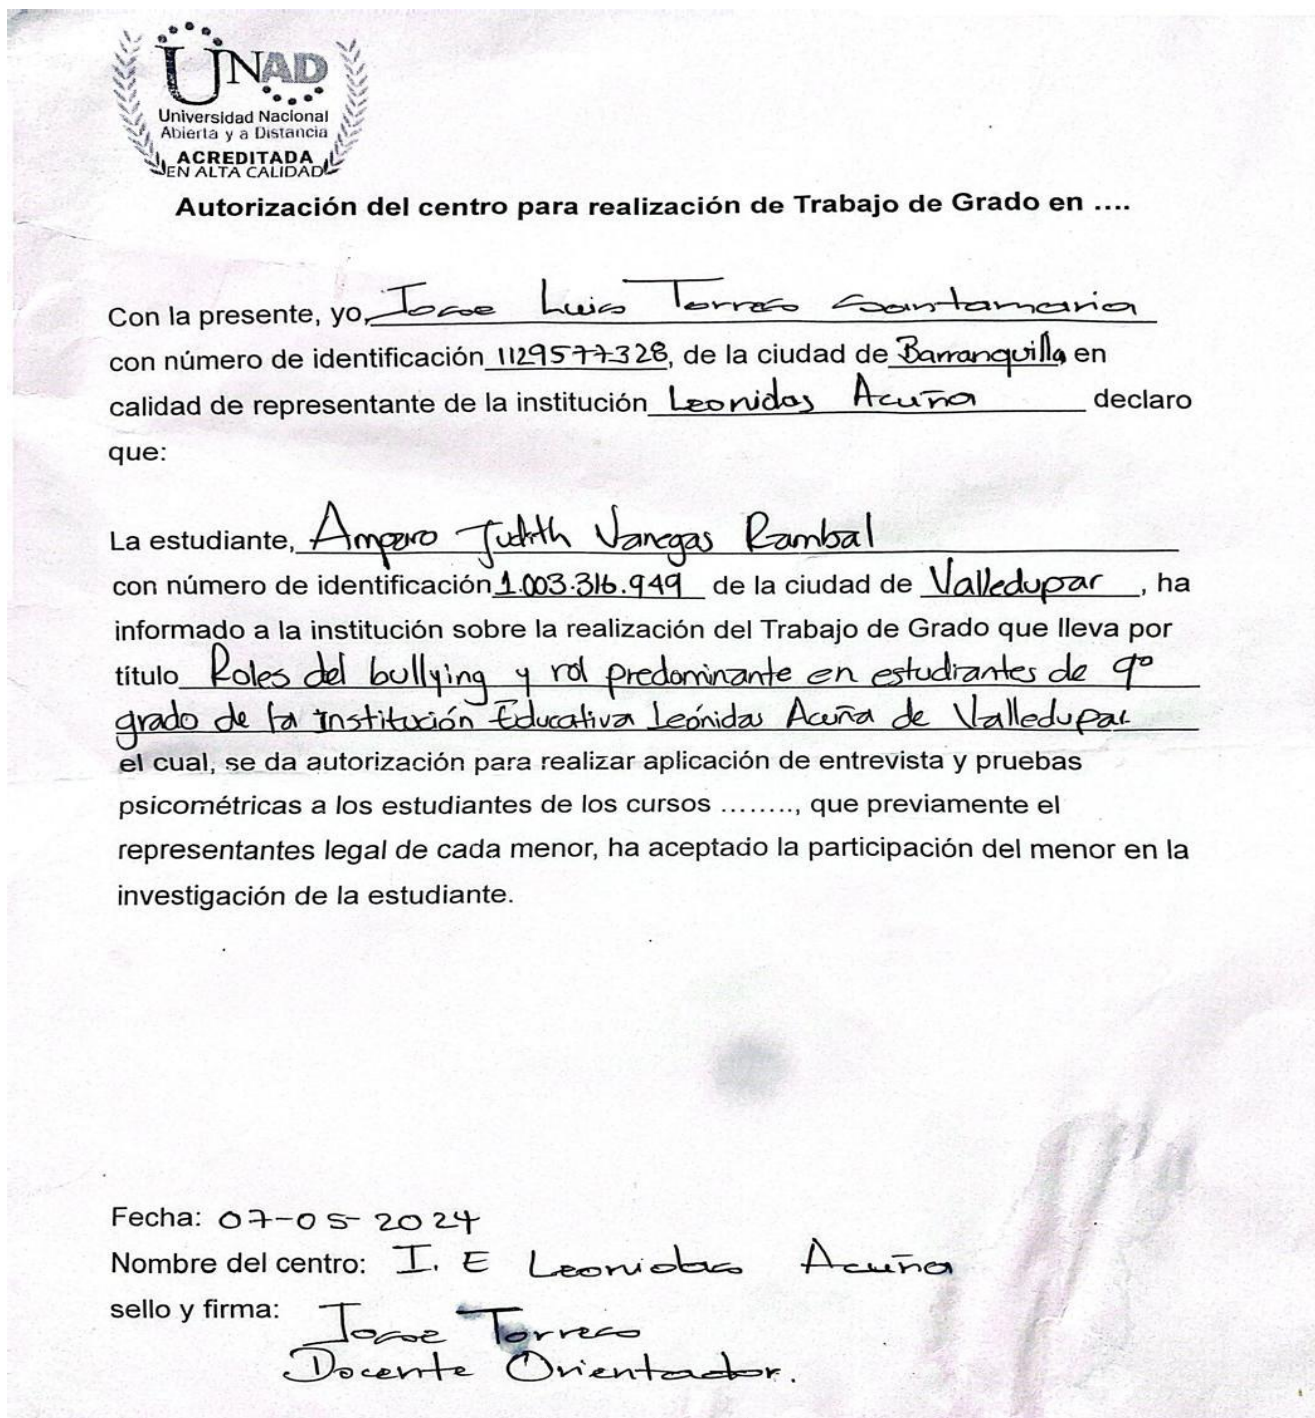 UNAD
Universidad Nacional
Abierta y a Distancia
ACREDITADA
EN ALTA CALIDAD
Autorización del centro para realización de Trabajo de Grado en ....
Con la presente, yo, Jose Luis Torres Santamaria
con número de identificación 1129577328, de la ciudad de Barranquilla en
calidad de representante de la institución Leonidas Acuña declaro
que:
La estudiante, Amparo Judith Vanegas Rambal
con número de identificación 1.003.316.949 de la ciudad de Valledupar, ha
informado a la institución sobre la realización del Trabajo de Grado que lleva por
título Roles del bullying y rol predominante en estudiantes de 9°
grado de la Institución Educativa Leónidas Acuña de Valledupar
el cual, se da autorización para realizar aplicación de entrevista y pruebas
psicométricas a los estudiantes de los cursos ........, que previamente el
representantes legal de cada menor, ha aceptado la participación del menor en la
investigación de la estudiante.
Fecha: 07-05-2024
Nombre del centro: I. E Leonidas Acuña
sello y firma: Jose Torres
Docente Orientador.